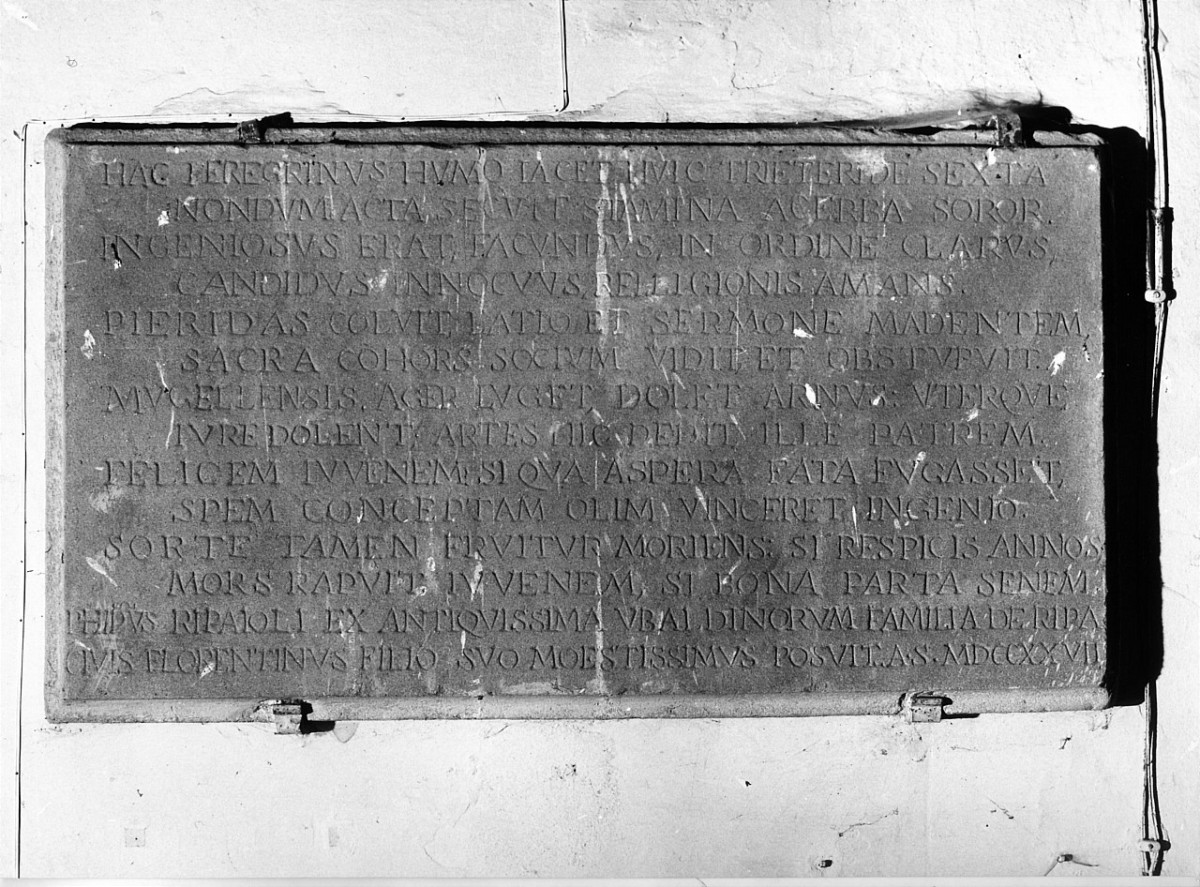 HAC PEREGRINVS HVMO IACET HVIC TRIETERIDE SEXTA
NONDVM ACTA SECVIT STAMINA ACERBA SOROR.
INGENIOSVS ERAT, FACVNDVS, IN ORDINE CLARVS,
CANDIDVS INNOCVVS, RELLIGIONIS AMANS.
PIERIDAS COLVIT: LATIO ET SERMONE MADENTEM
SACRA COHORS SOCIVM VIDIT ET OBSTVPVIT.
MVGELLENSIS AGER LVGET, DOLET ARNVS: VTERQVE
IVRE DOLENT: ARTES HIC DEDIT ILLE PATREM.
FELICEM IVVENEM! SI QVA ASPERA FATA FVGASSET,
SPEM CONCEPTAM OLIM VINCERET INGENIO.
SORTE TAMEN FRVITVR MORIENS: SI RESPICIS ANNOS
MORS RAPVIT IVVENEM, SI BONA PARTA SENEM.
PHIPVS RIPAIOLI EX ANTIQVISSIMA VBALDINORVM FAMILIA DE RIPA
CIVIS FLORENTINVS FILIO SVO MOESTISSIMVS POSVIT. A. S. MDCCXXVII